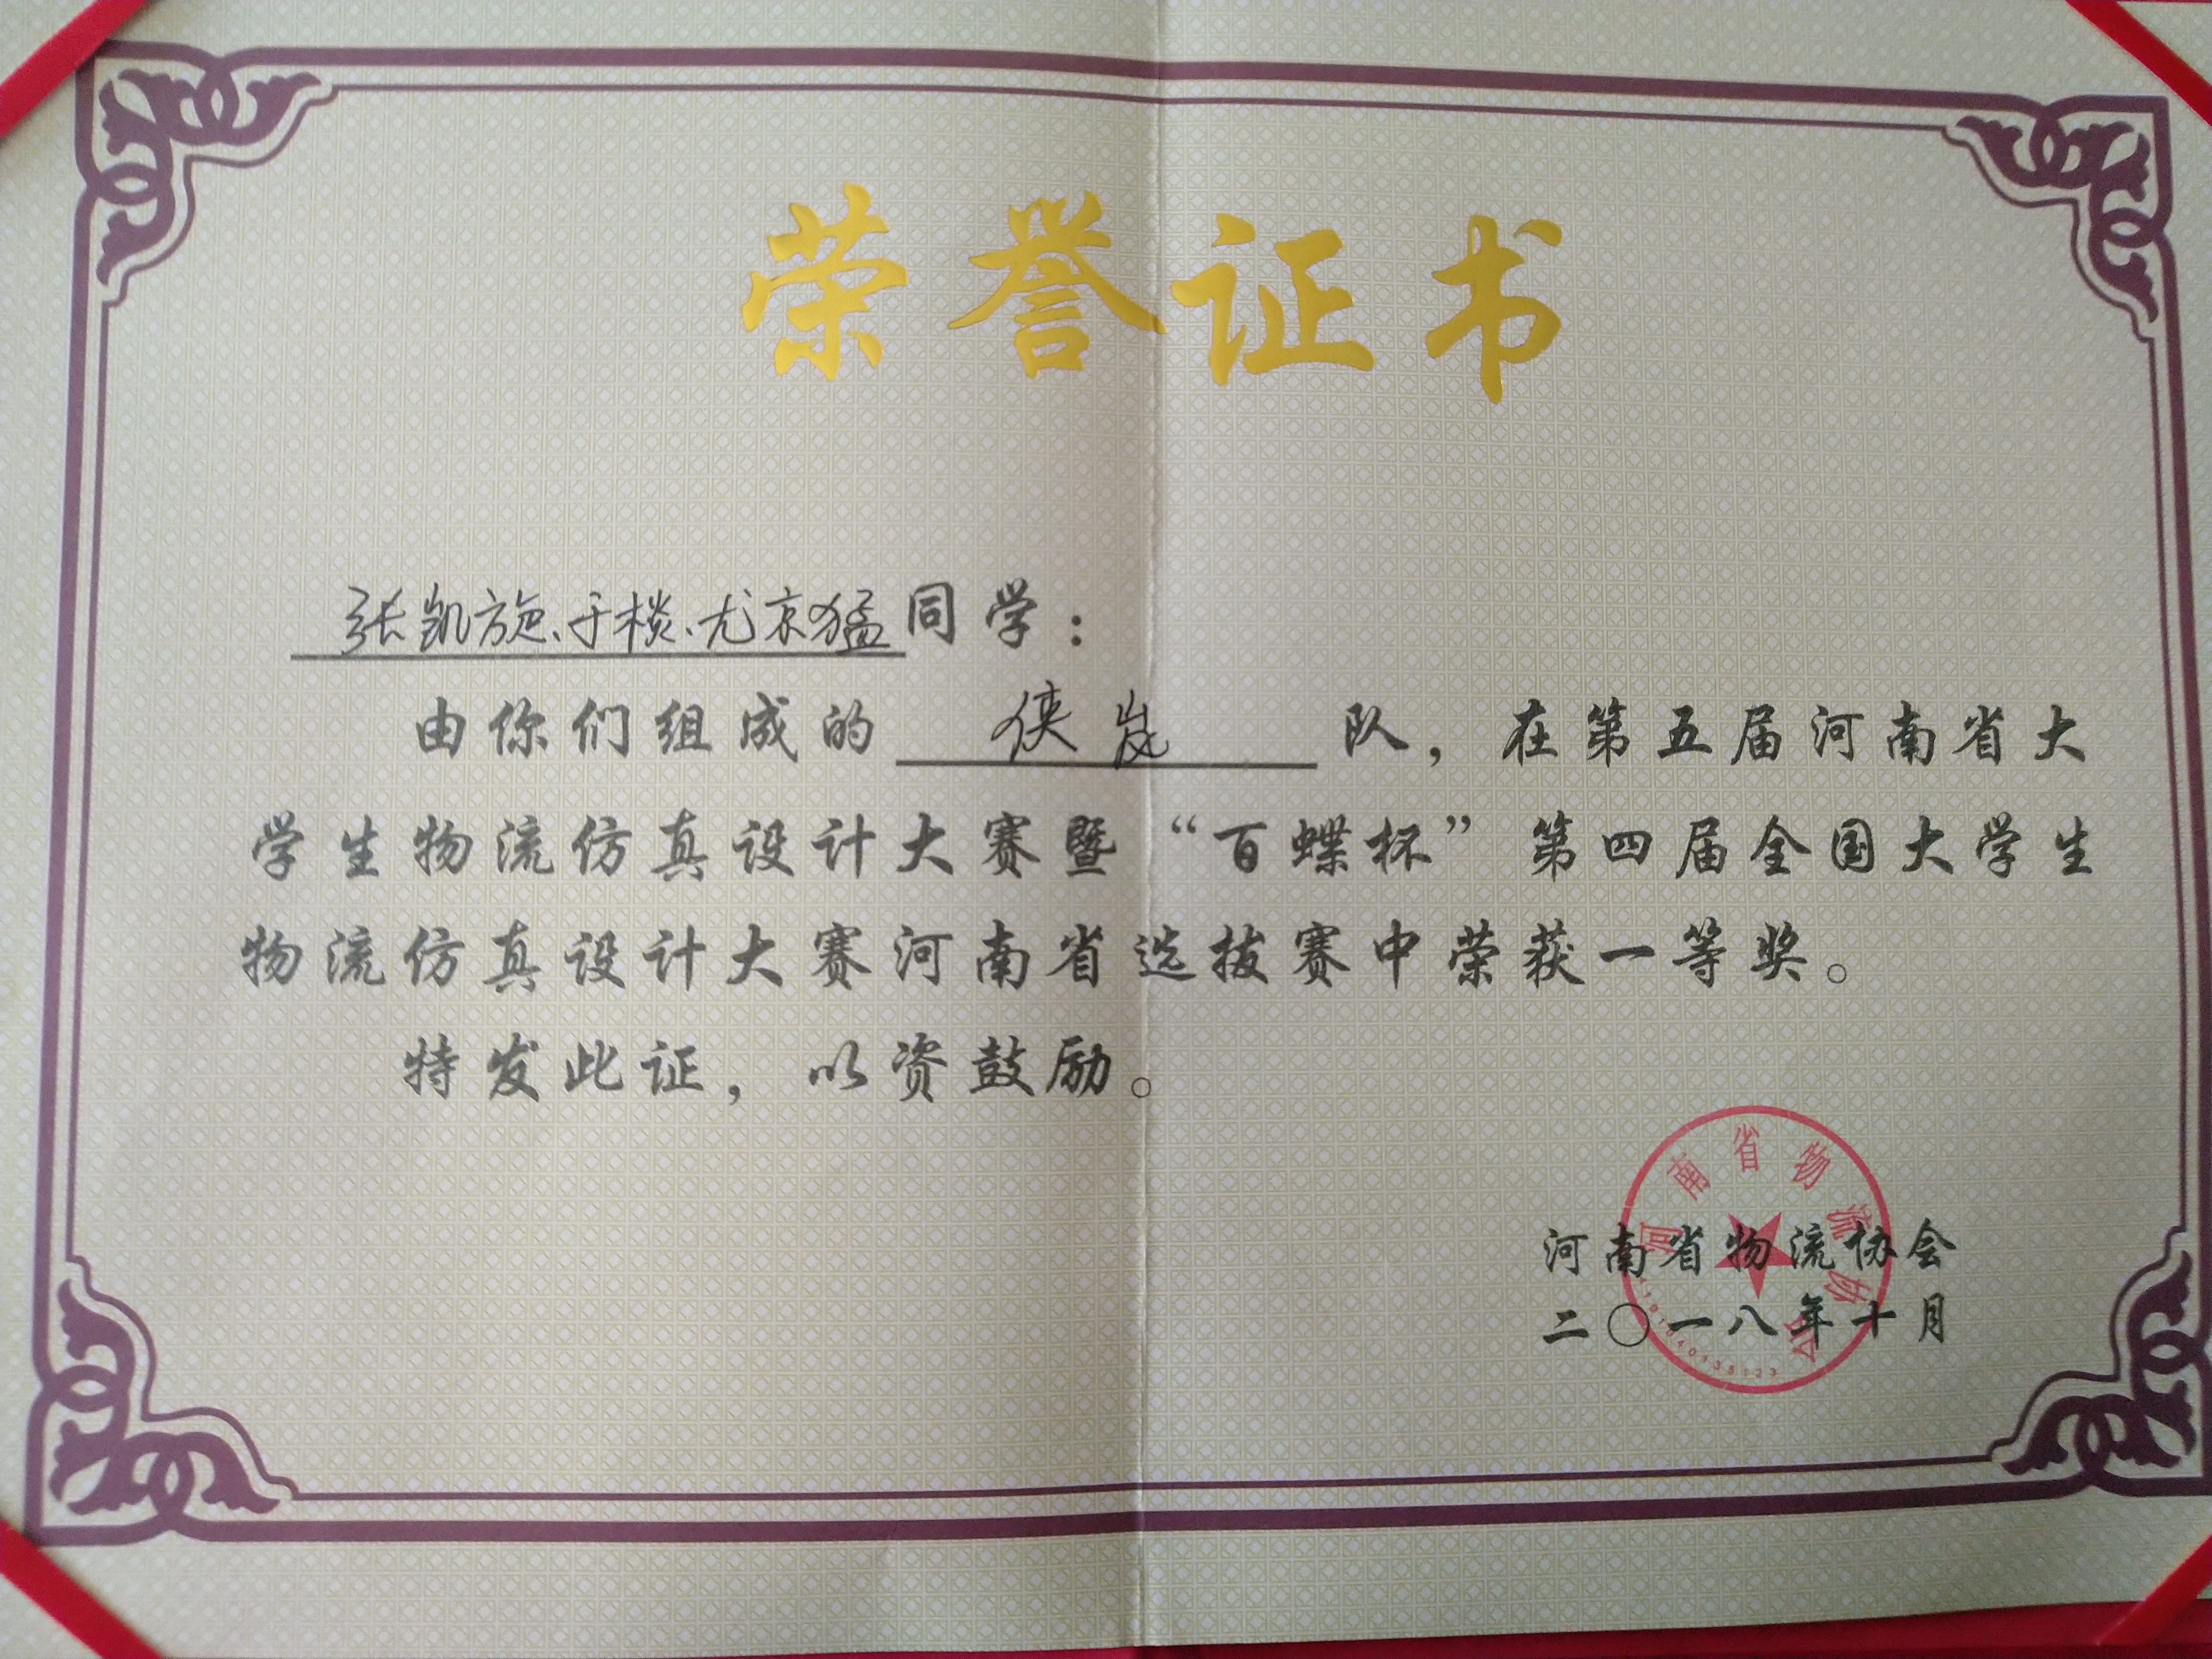 荣誉证书
张凯旋、于棪、尤京猛同学：
由你们组成的 侠岚 队，在第五届河南省大
学生物流仿真设计大赛暨“百蝶杯”第四届全国大学生
物流仿真设计大赛河南省选拔赛中荣获一等奖。
特发此证，以资鼓励。
河南省物流协会
河南省物流协会
二〇一八年十月